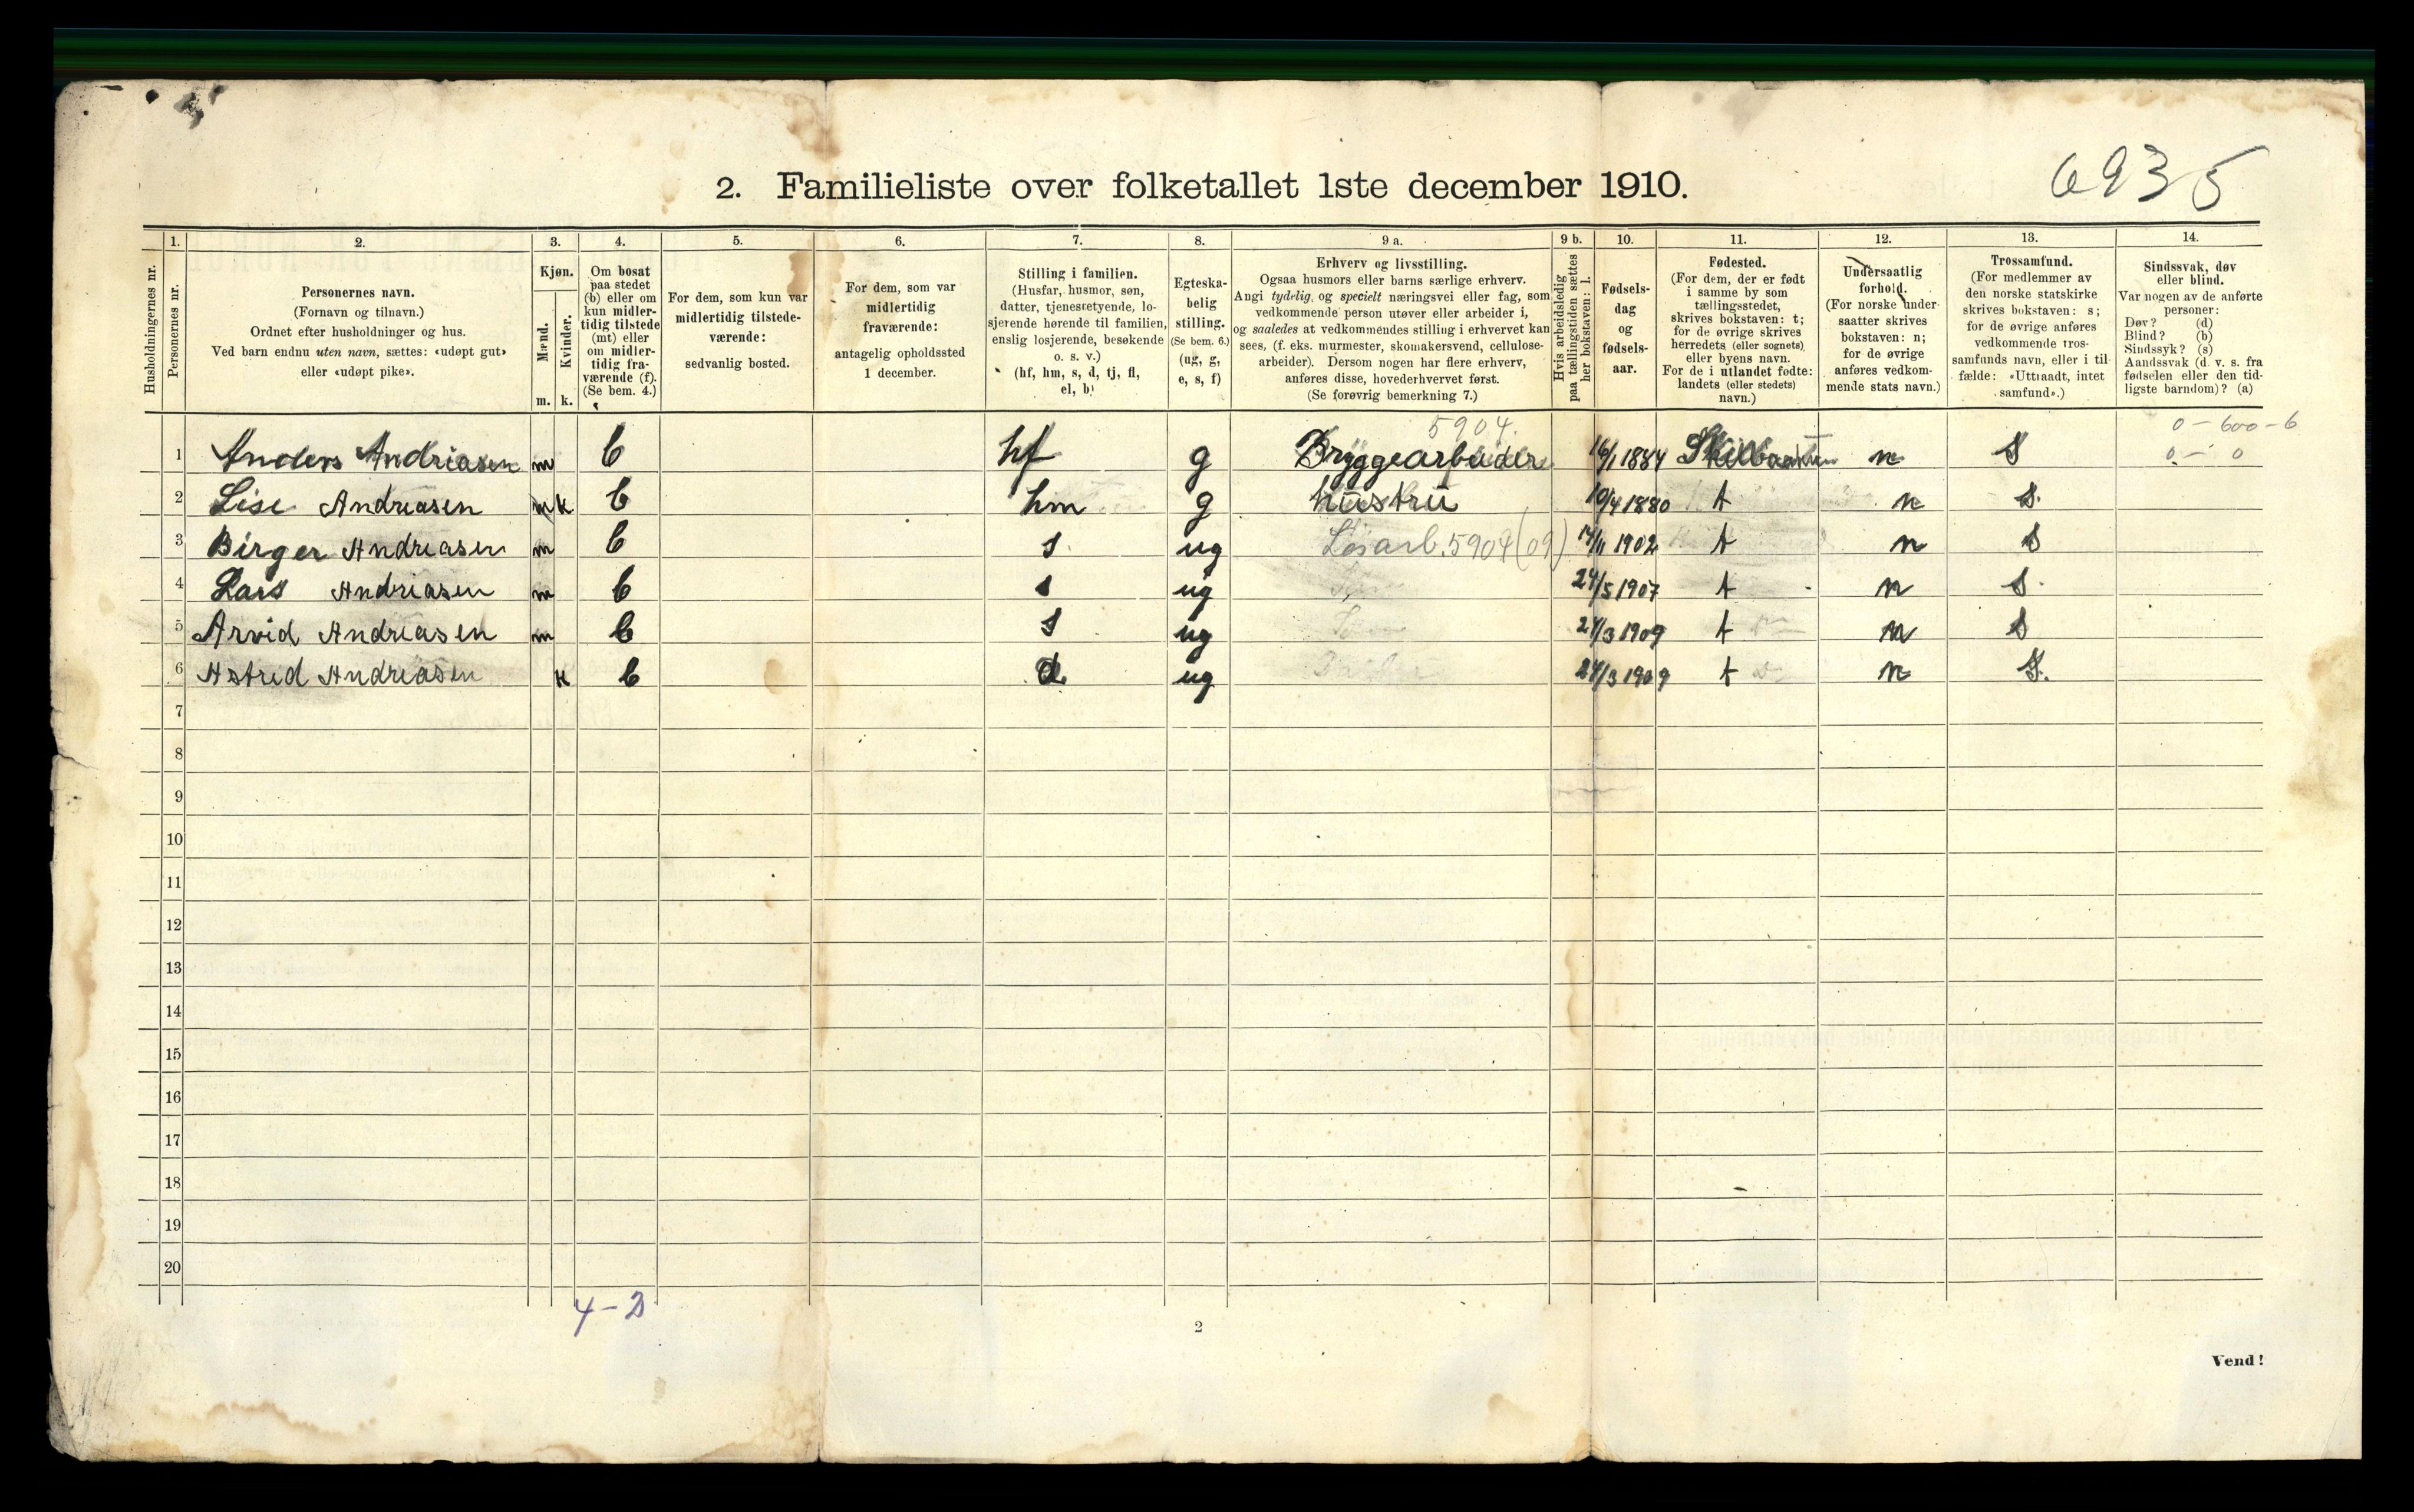 6935
2. Familieliste over folketallet 1ste december 1910.
Husholdningernes nr.
1.
Personernes nr.
2.
Personernes navn.
(Fornavn og tilnavn.)
Ordnet efter husholdninger og hus.
Ved barn endnu uten navn, sættes: «udøpt gut»
eller «udøpt pike».
3.
Kjøn.
Mænd.
Kvinder.
m. k.
4.
Om bosat
paa stedet
(b) eller om
kun midler-
tidig tilstede
(mt) eller
om midler-
tidig fra-
værende (f).
(Se bem. 4.)
5.
For dem, som kun var
midlertidig tilstede-
værende:
sedvanlig bosted.
6.
For dem, som var
midlertidig
fraværende:
antagelig opholdssted
1 december.
7.
Stilling i familien.
(Husfar, husmor, søn,
datter, tjenestetyende, lo-
sjerende hørende til familien,
enslig losjerende, besøkende
o. s. v.)
(hf, hm, s, d, tj, fl,
el, b)
8.
Egteska-
belig
stilling.
(Se bem. 6.)
(ug, g,
e, s, f)
9 a.
Erhverv og livsstilling.
Ogsaa husmors eller barns særlige erhverv.
Angi tydelig og specielt næringsvei eller fag, som
vedkommende person utøver eller arbeider i,
og saaledes at vedkommendes stilling i erhvervet kan
sees, (f. eks. murmester, skomakersvend, cellulose-
arbeider). Dersom nogen har flere erhverv,
anføres disse, hovederhvervet først.
(Se forøvrig bemerkning 7.)
9 b.
Hvis arbeidsledig
paa tællingstiden sættes
her bokstaven: l.
10.
Fødsels-
dag
og
fødsels-
aar.
11.
Fødested.
(For dem, der er født
i samme by som
tællingsstedet,
skrives bokstaven: t;
for de øvrige skrives
herredets (eller sognets)
eller byens navn.
For de i utlandet fødte:
landets (eller stedets)
navn.)
12.
Undersaatlig
forhold.
(For norske under-
saatter skrives
bokstaven: n;
for de øvrige
anføres vedkom-
mende stats navn.)
13.
Trossamfund.
(For medlemmer av
den norske statskirke
skrives bokstaven: s;
for de øvrige anføres
vedkommende tros-
samfunds navn, eller i til-
fælde: «Uttraadt, intet
samfund».)
14.
Sindssvak, døv
eller blind.
Var nogen av de anførte
personer:
Døv? (d)
Blind? (b)
Sindssyk? (s)
Aandssvak (d. v. s. fra
fødselen eller den tid-
ligste barndom)? (a)
5904. 0-600-6
1 Anders Andriasen m b hf g Bryggearbeider 16/1 1884 n S 0 - 0
2 Lise Andreasen k b hm g hustru 10/4 1880 t n S.
3 Birger Andreasen m b s. ug Løsarb. 5904 (09) 14/11 1902 t n S
4 Lars Andriasen m b s ug 24/5 1907 t n S.
5 Arvid Andreasen m b s ug 24/3 1909 t n S
6 Astrid Andreasen k b d. ug 24/3 1909 t n S.
7
8
9
10
11
12
13
14
15
16
17
18
19
20
4-2
2
Vend!